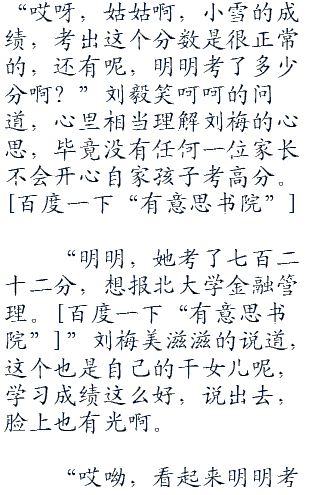 “哎呀，姑姑啊，小雪的成
绩，考出这个分数是很正常
的，还有呢，明明考了多少
分啊？”刘毅笑呵呵的问
道，心里相当理解刘梅的心
思，毕竟没有任何一位家长
不会开心自家孩子考高分。
[百度一下“有意思书院”]
“明明，她考了七百二
十二分，想报北大学金融管
理。[百度一下“有意思书
院”]”刘梅美滋滋的说道，
这个也是自己的干女儿呢，
学习成绩这么好，说出去，
脸上也有光啊。
“哎呦，看起来明明考